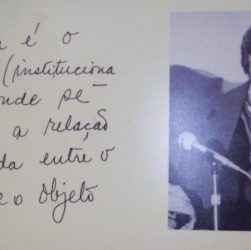 é o
(instituciona
onde sé-
a relação
da entre o
e o objeto